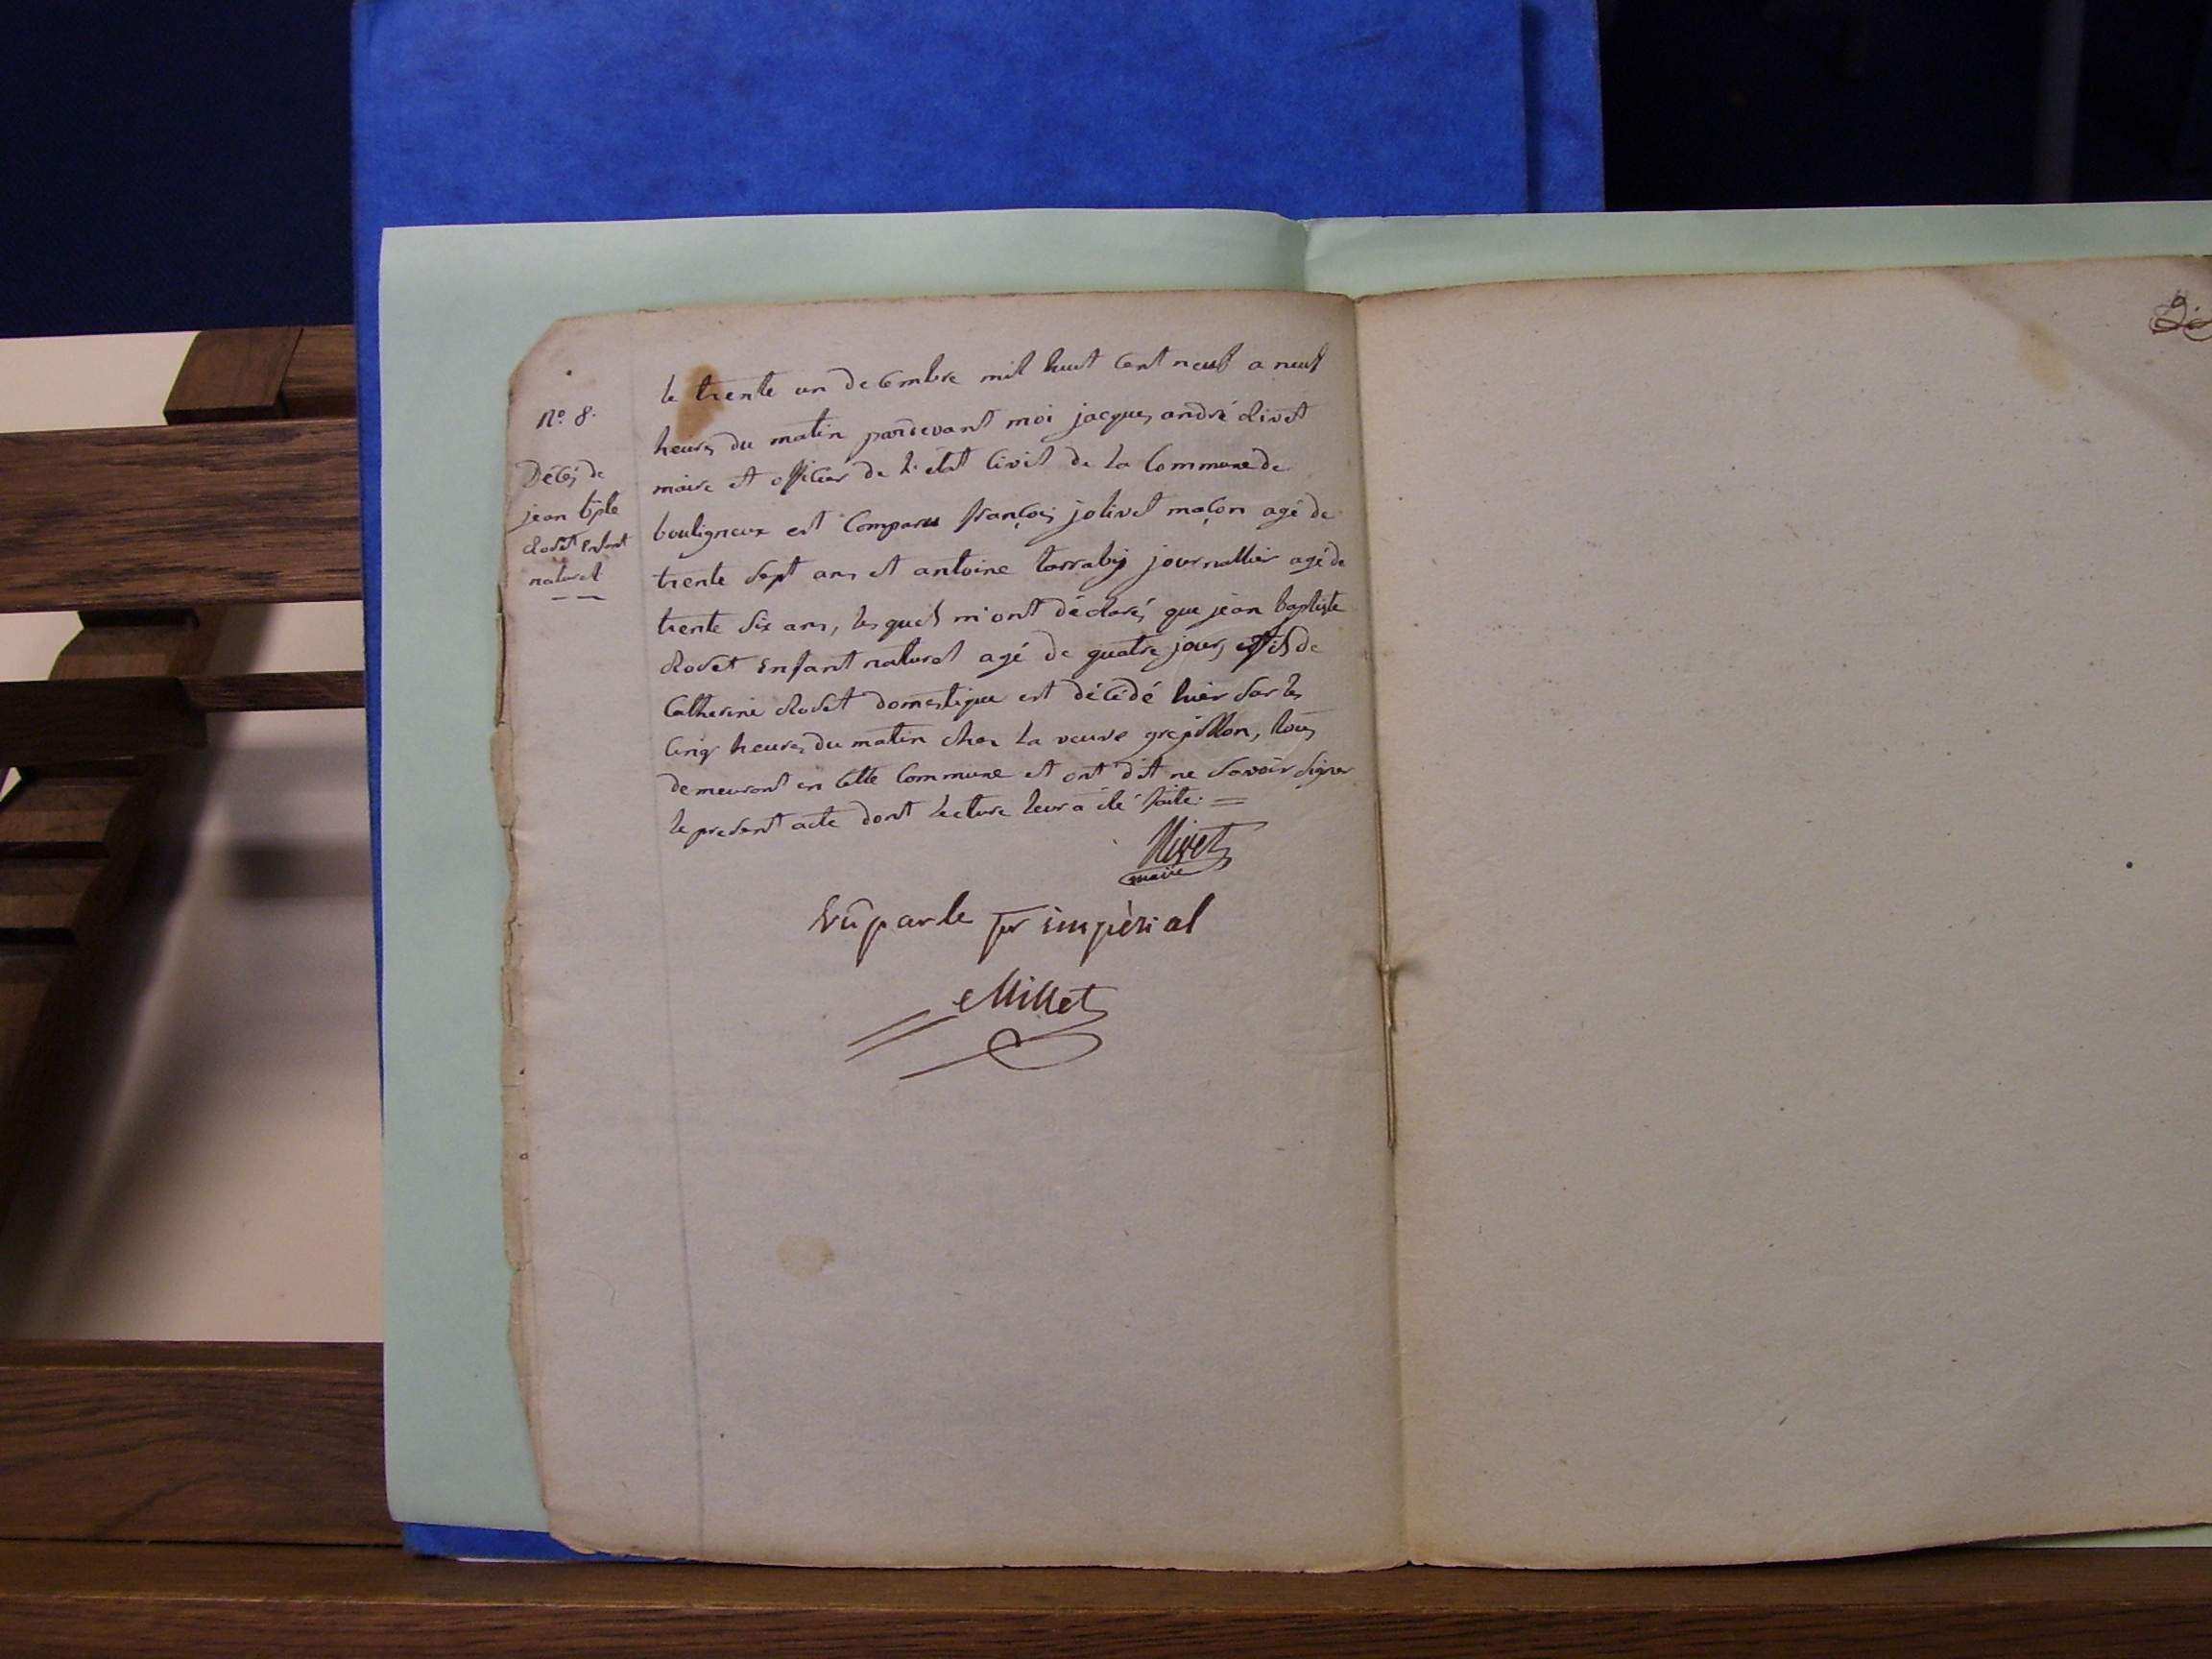 N.º 8.
Décès de
jean bpte
Rodet Enfant
naturel
le trente un decembre mil huit Cent neuf a neuf
heures du matin pardevant moi jacques andré Rivet
maire et officier de l'etat Civil de la Commune de
bouligneux est Comparu françois jolivet maçon agé de
trente Sept ans et antoine journallier agé de
trente Six ans, les quels m'ont déclarés que jean baptiste
Rodet Enfant naturel agé de quatre jours fils de
Catherine Rodet domestique est décédé hier Sur les
Cinq heures du matin chez la veuve grepillon, tous
demeurant en Cette Commune et ont dit ne Savoir Signer
le present acte dont lecture leur a été faite. =
Rivet
maire
Vû par le pr impèrial
Millet